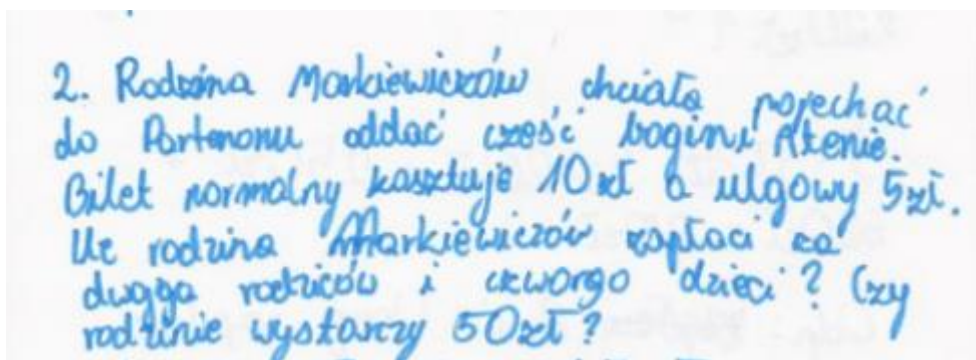 2. Rodzina Markiewiczów chciała pojechać
do Partenonu oddać cześć bogini Atenie.
Bilet normalny kosztuje 10 zł a ulgowy 5zł.
Ile rodzina Markiewiczów zapłaci za
dwojga rodziców i czworgo dzieci? Czy
rodzinie wystarczy 50zł?